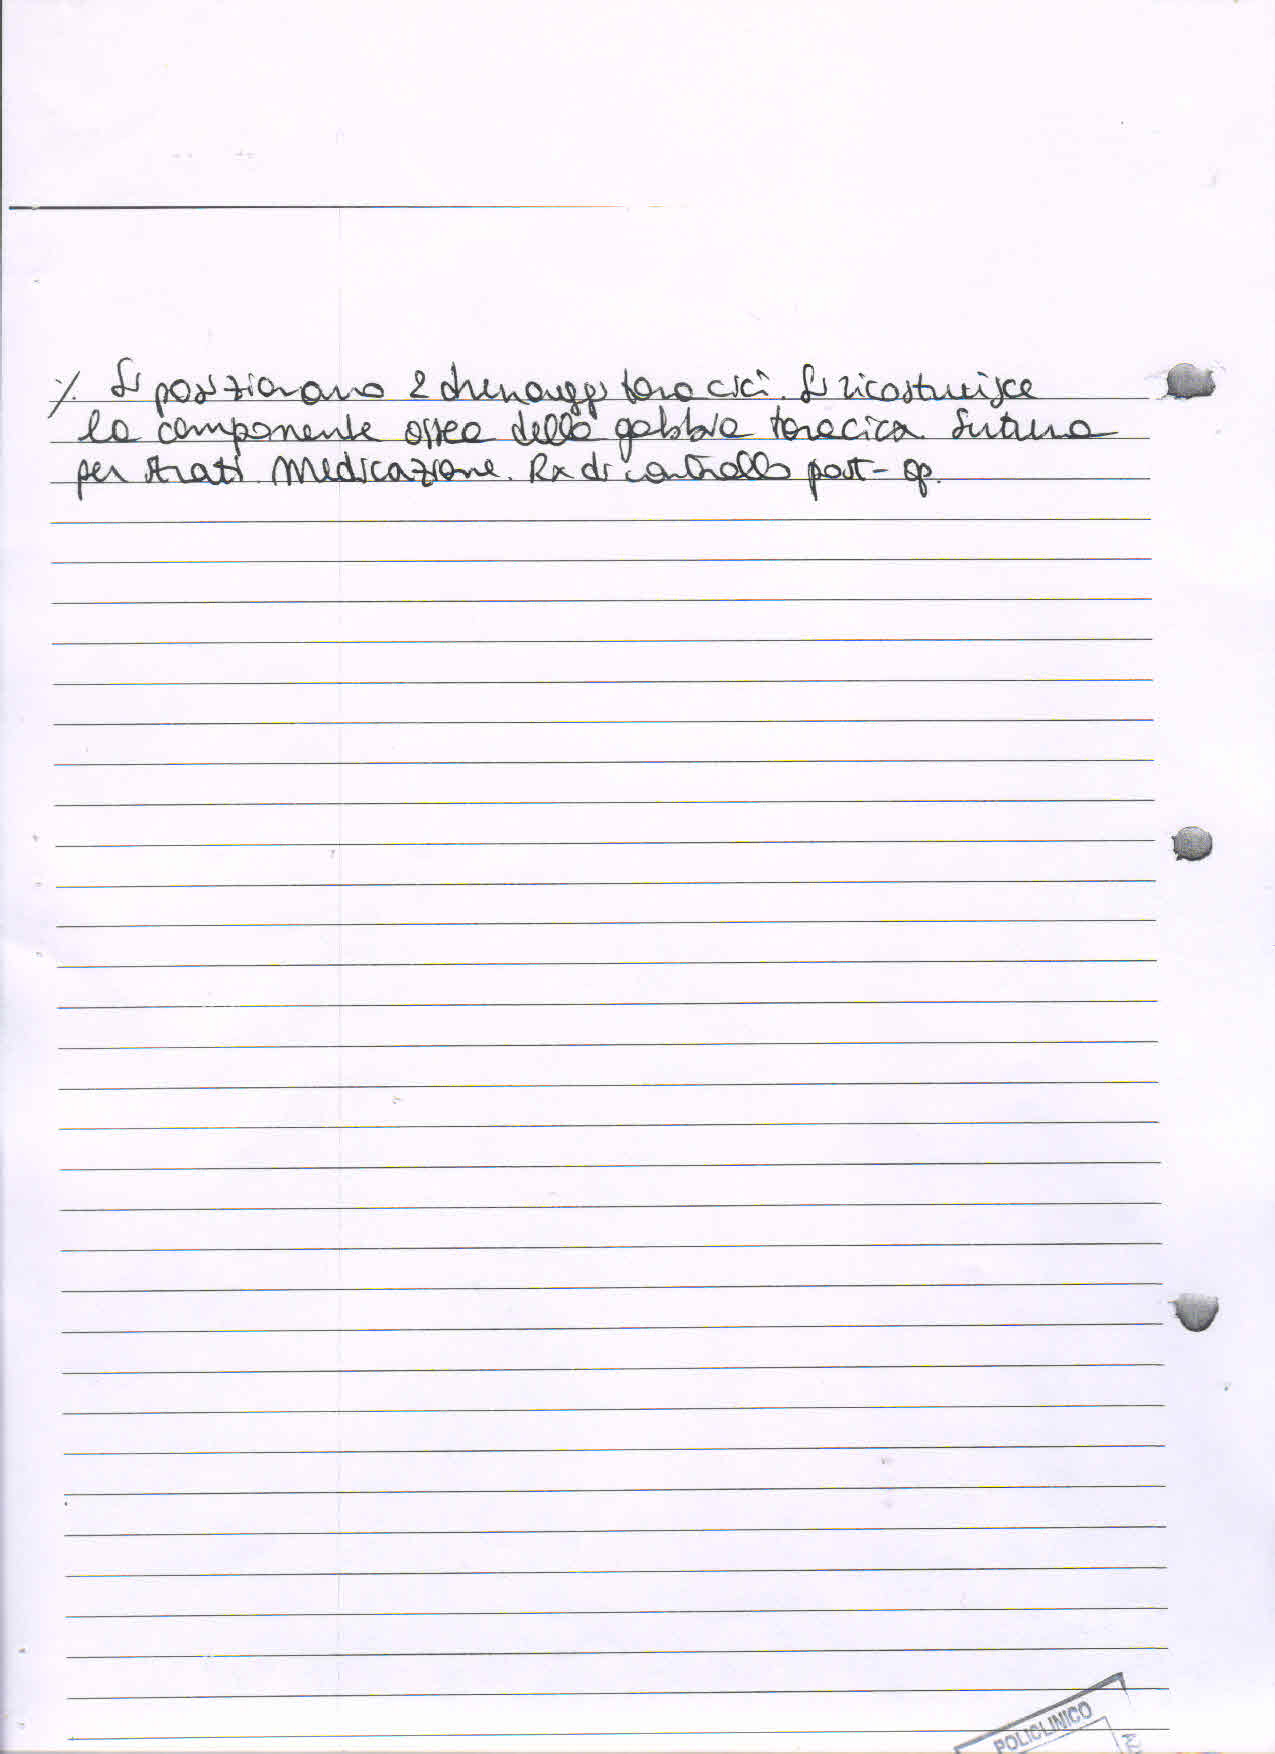 ·/. Si posizionano 2 drenaggi toracici. Si ricostruisce
la componente ossea della gabbia toracica. Sutura
per strati. Medicazione. Rx di controllo post-op.
POLICLINICO